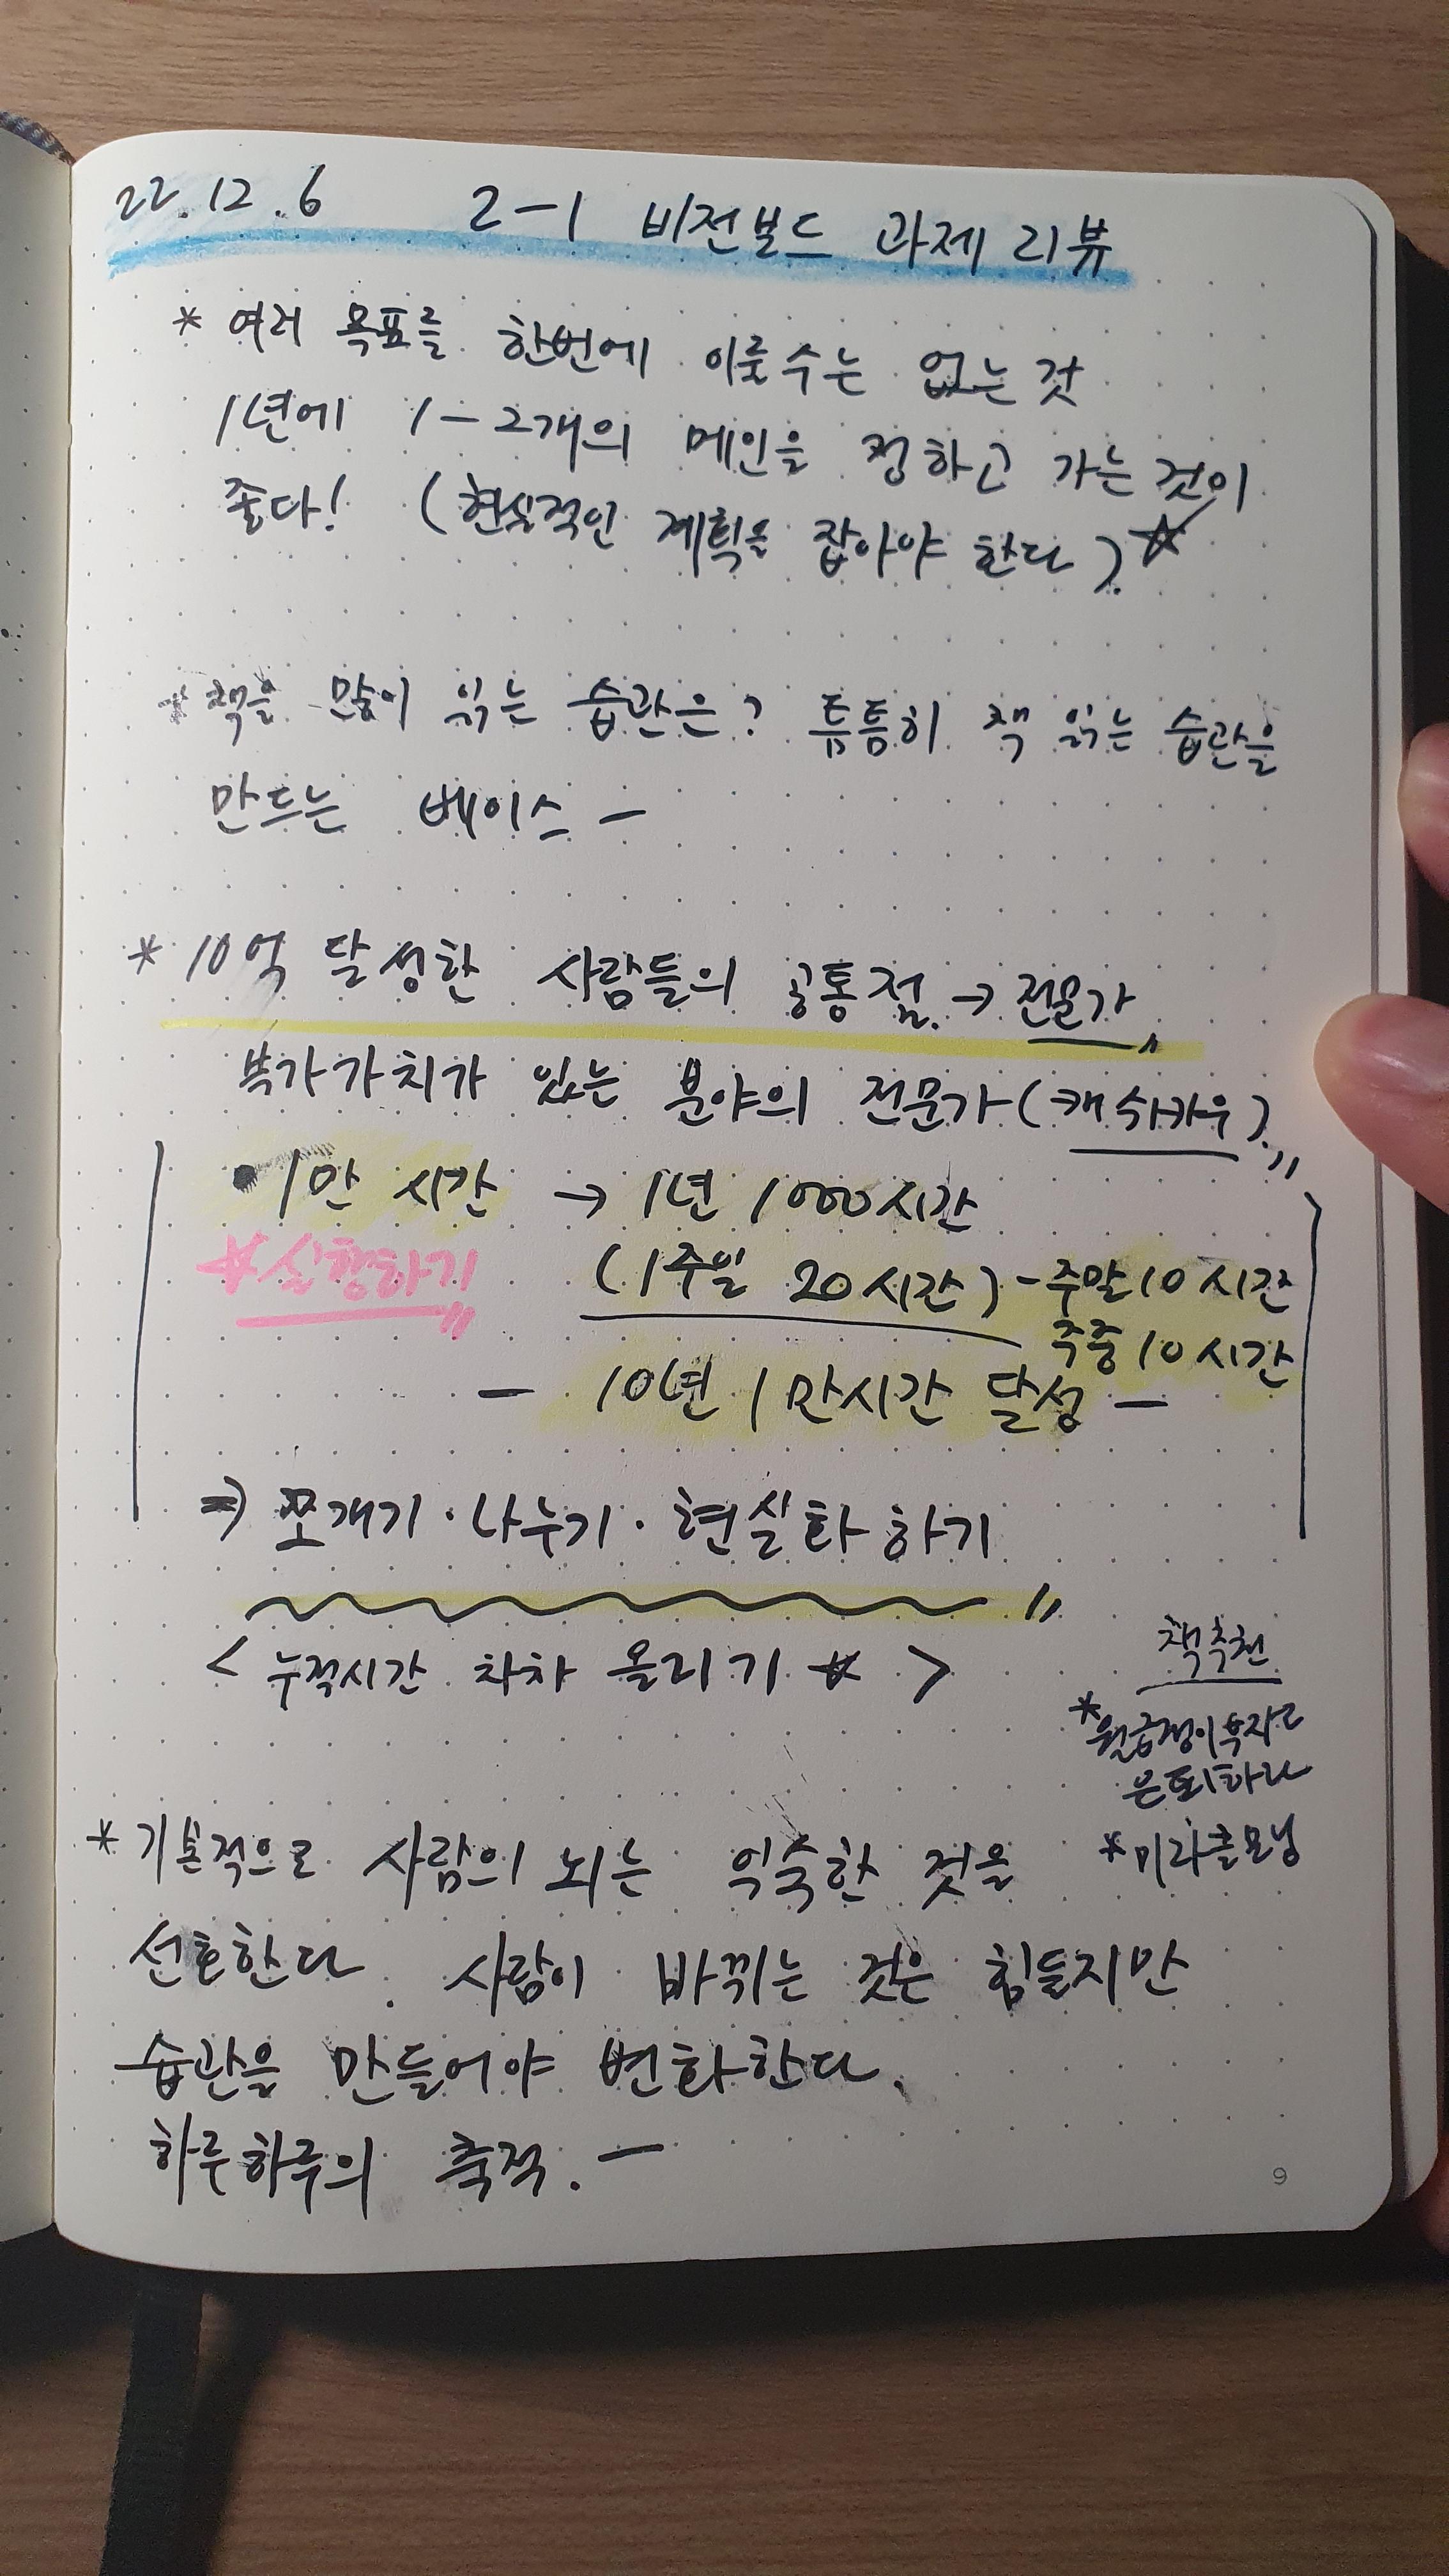 22.12.6 2-1 비전보드 과제 리뷰
* 여러 목표를 한번에 이룰수는 없는 것
1년에 1-2개의 메인을 정하고 가는 것이
좋다! (현실적인 계획을 잡아야 한다)☆
* 책을 많이 읽는 습관은? 틈틈히 책 읽는 습관을
만드는 베이스 -
* 10억 달성한 사람들의 공통점. → 전문가
부가가치가 있는 분야의 전문가 (캐쉬카우)
• 1만 시간 → 1년 1000시간
☆실행하기 (1주일 20시간) - 주말10시간
주중10시간
- 10년 1만시간 달성 -
⇒ 쪼개기 · 나누기 · 현실화 하기
< 누적시간 차차 올리기 ☆ >
책추천
* 월급쟁이 부자로
은퇴하라
* 미라클모닝
* 기본적으로 사람의 뇌는 익숙한 것을
선호한다. 사람이 바뀌는 것은 힘들지만
습관을 만들어야 변화한다.
하루하루의 축적. -
9